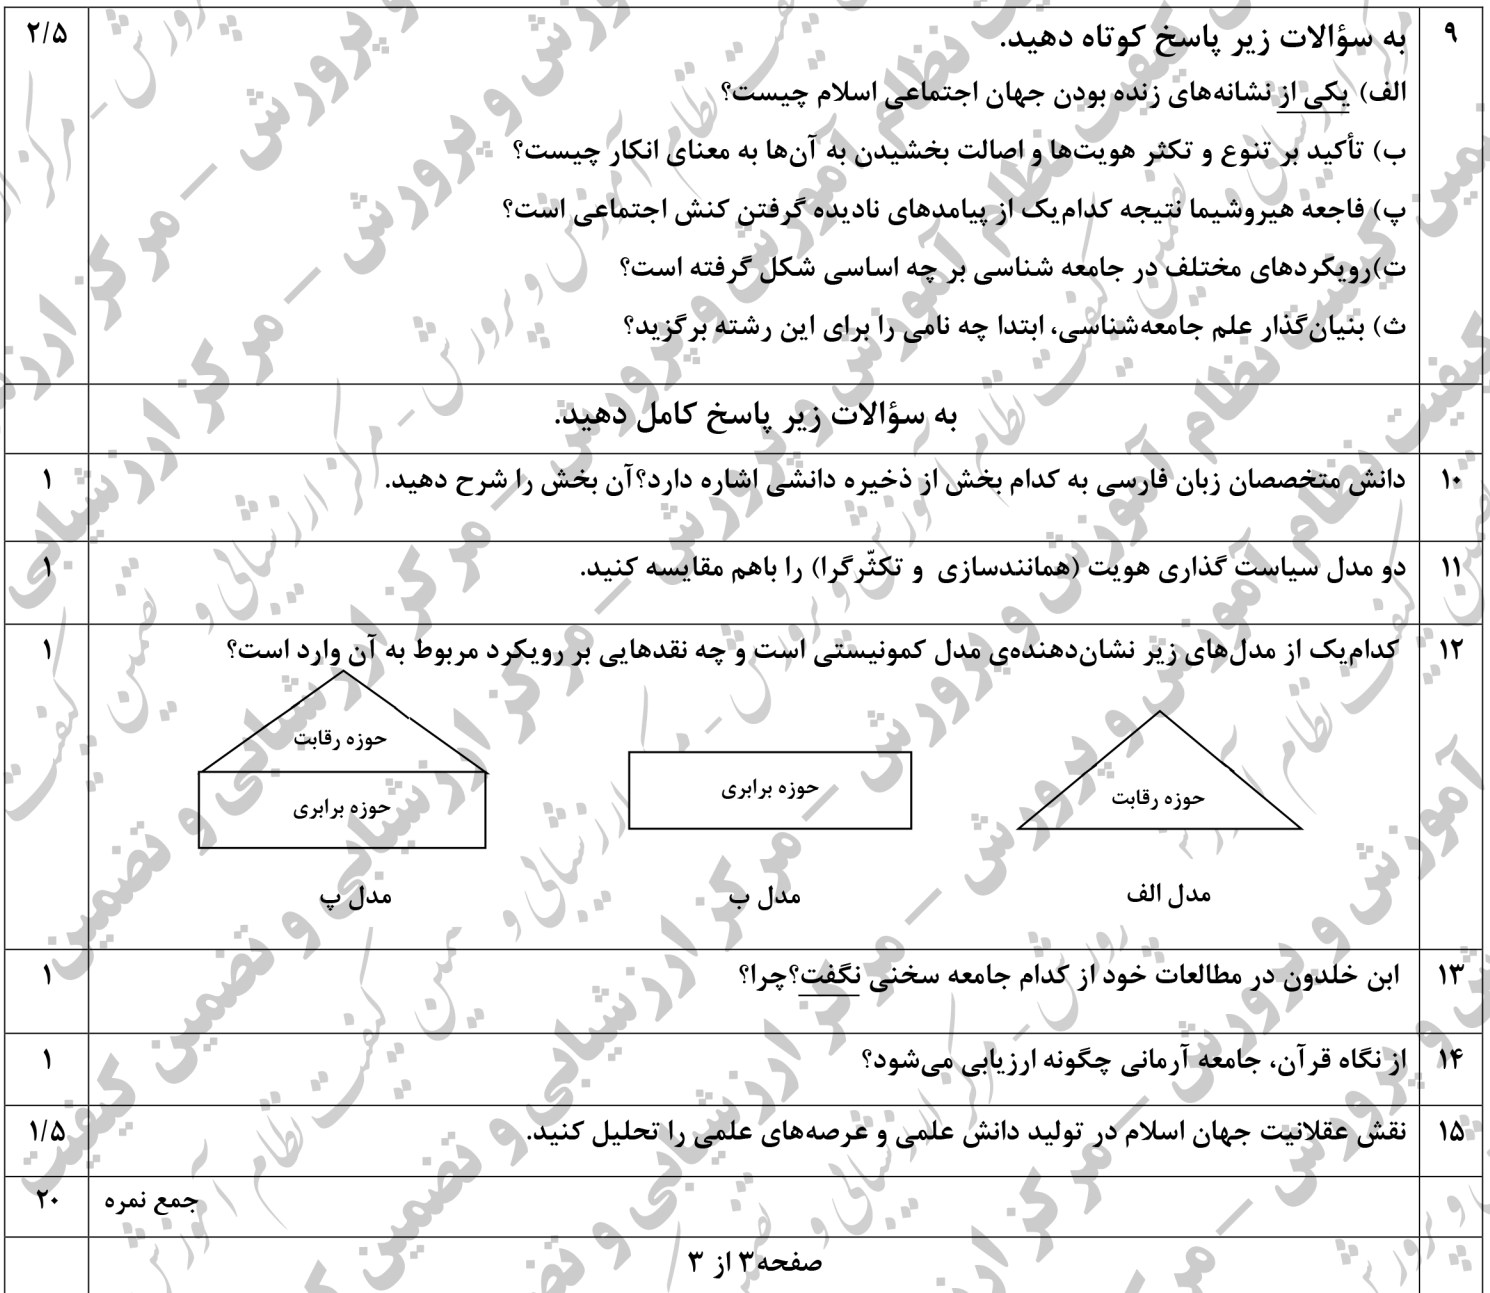 ۹ به سؤالات زیر پاسخ کوتاه دهید. ۲/۵
الف) یکی از نشانه‌های زنده بودن جهان اجتماعی اسلام چیست؟
ب) تأکید بر تنوع و تکثر هویت‌ها و اصالت بخشیدن به آن‌ها به معنای انکار چیست؟
پ) فاجعه هیروشیما نتیجه کدام‌یک از پیامدهای نادیده گرفتن کنش اجتماعی است؟
ت)رویکردهای مختلف در جامعه شناسی بر چه اساسی شکل گرفته است؟
ث) بنیان‌گذار علم جامعه‌شناسی، ابتدا چه نامی را برای این رشته برگزید؟
به سؤالات زیر پاسخ کامل دهید.
۱۰ دانش متخصصان زبان فارسی به کدام بخش از ذخیره دانشی اشاره دارد؟آن بخش را شرح دهید. ۱
۱۱ دو مدل سیاست گذاری هویت (همانندسازی و تکثّرگرا) را باهم مقایسه کنید. ۱
۱۲ کدام‌یک از مدل‌های زیر نشان‌دهنده‌ی مدل کمونیستی است و چه نقدهایی بر رویکرد مربوط به آن وارد است؟ ۱
حوزه رقابت
حوزه برابری
حوزه رقابت
حوزه برابری
مدل الف
مدل ب
مدل پ
۱۳ ابن خلدون در مطالعات خود از کدام جامعه سخنی نگفت؟چرا؟ ۱
۱۴ از نگاه قرآن، جامعه آرمانی چگونه ارزیابی می‌شود؟ ۱
۱۵ نقش عقلانیت جهان اسلام در تولید دانش علمی و عرصه‌های علمی را تحلیل کنید. ۱/۵
جمع نمره ۲۰
صفحه۳ از ۳
مرکز ارزشیابی و تضمین کیفیت نظام آموزش و پرورش